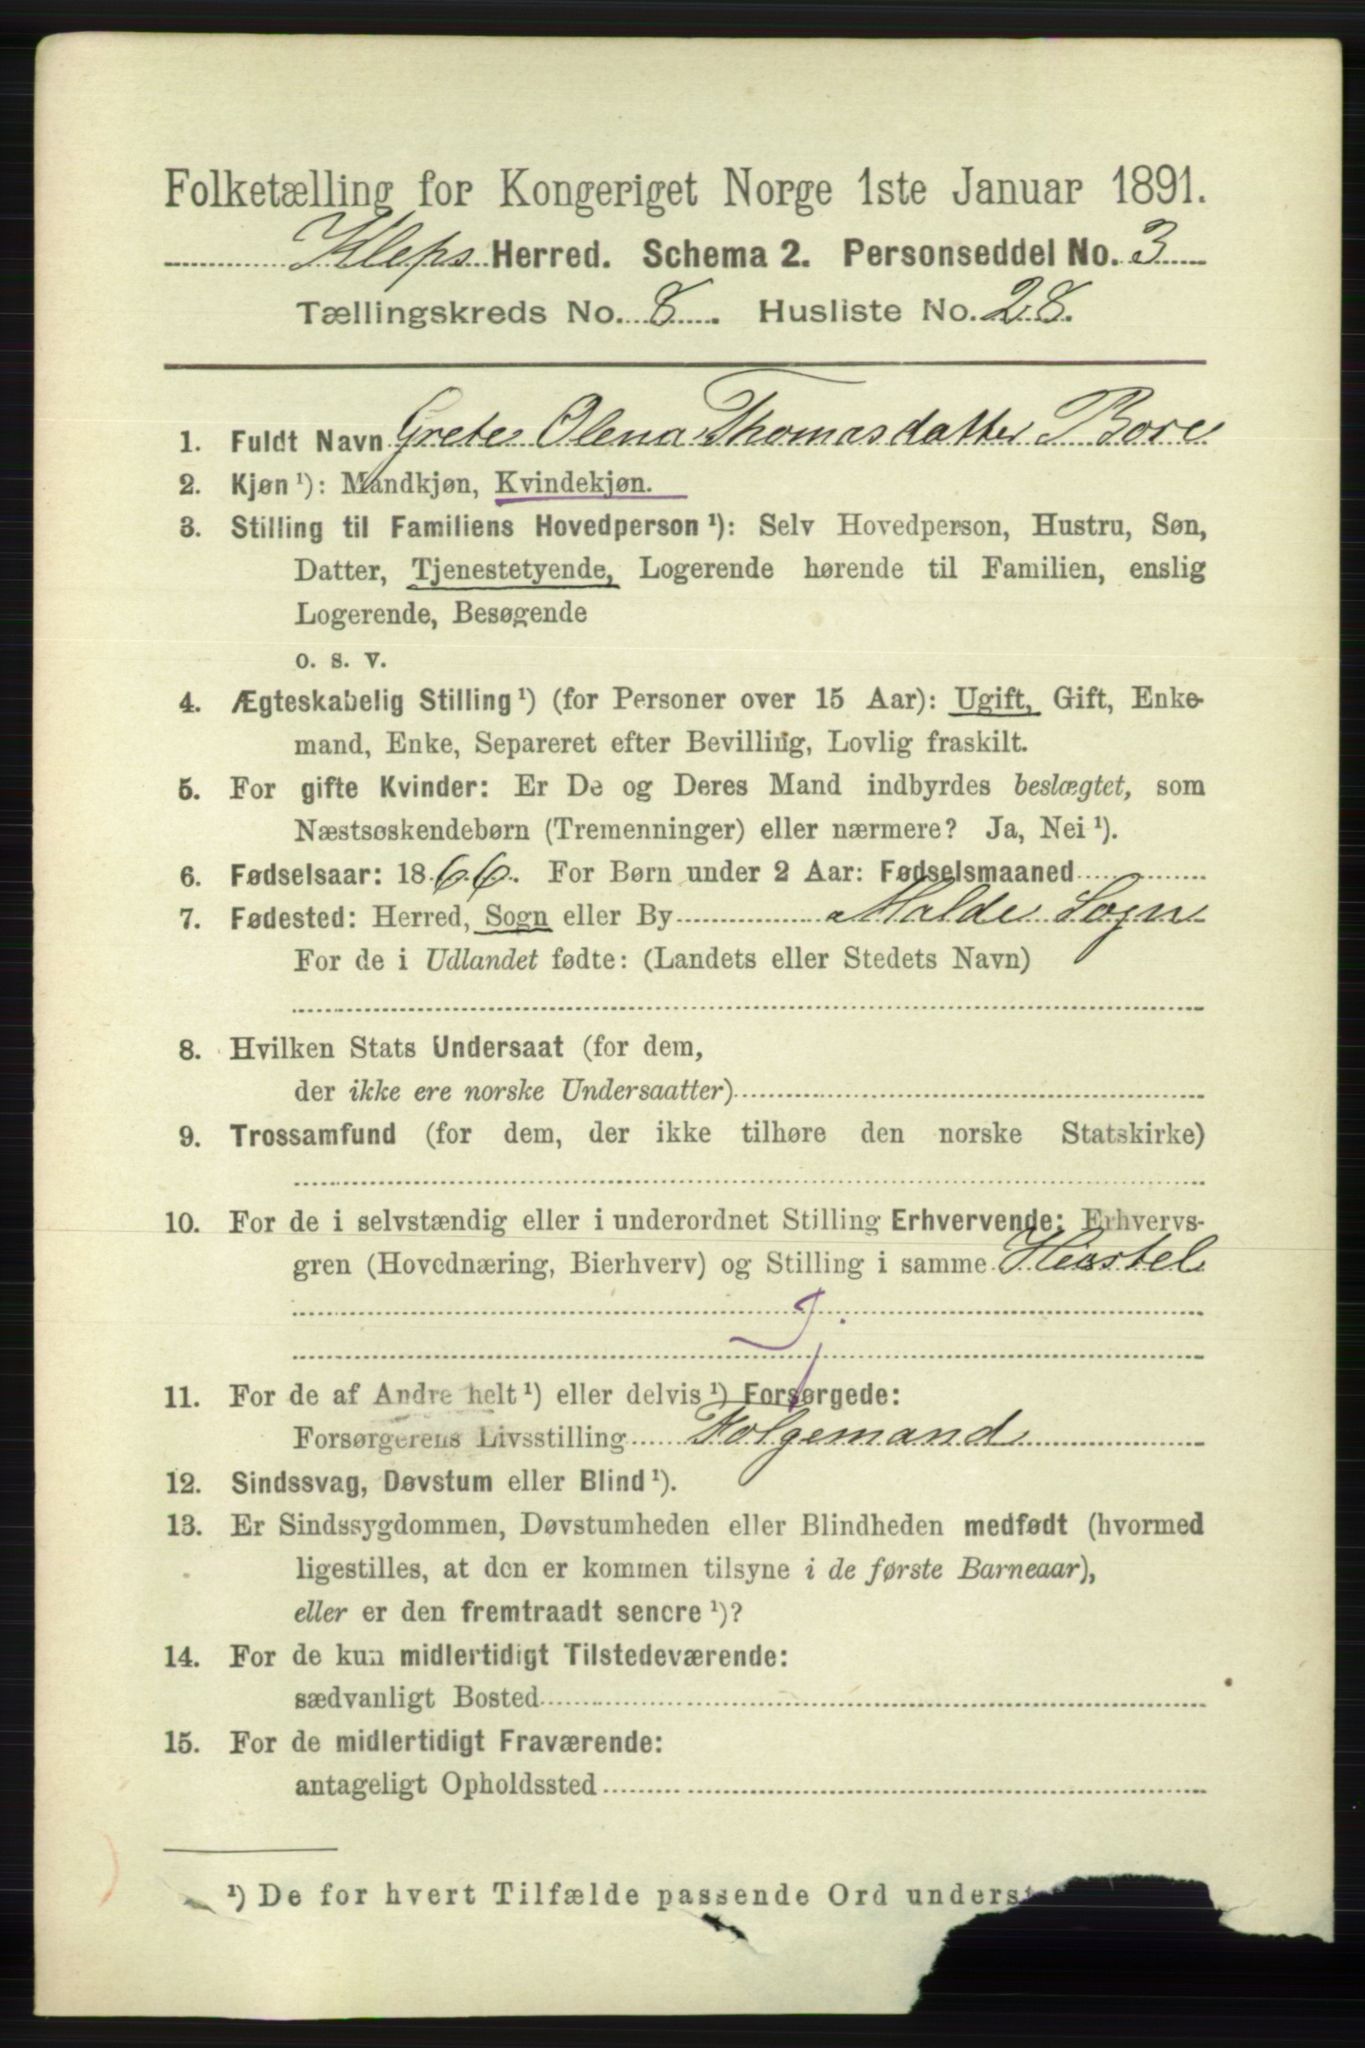 Folketælling for Kongeriget Norge 1ste Januar 1891.
Kleps Herred. Schema 2. Personseddel No. 3
Tællingskreds No. 8. Husliste No. 28.
1. Fuldt Navn Grete Olena Thomasdatter Bore
2. Kjøn ¹): Mandkjøn, Kvindekjøn.
3. Stilling til Familiens Hovedperson ¹): Selv Hovedperson, Hustru, Søn,
Datter, Tjenestetyende, Logerende hørende til Familien, enslig
Logerende, Besøgende
o. s. v.
4. Ægteskabelig Stilling ¹) (for Personer over 15 Aar): Ugift, Gift, Enke-
mand, Enke, Separeret efter Bevilling, Lovlig fraskilt.
5. For gifte Kvinder: Er De og Deres Mand indbyrdes beslægtet, som
Næstsøskendebørn (Tremenninger) eller nærmere? Ja, Nei ¹).
6. Fødselsaar: 1866. For Børn under 2 Aar: Fødselsmaaned
7. Fødested: Herred, Sogn eller By Malde Sogn
For de i Udlandet fødte: (Landets eller Stedets Navn)
8. Hvilken Stats Undersaat (for dem,
der ikke ere norske Undersaatter)
9. Trossamfund (for dem, der ikke tilhøre den norske Statskirke)
10. For de i selvstændig eller i underordnet Stilling Erhvervende: Erhvervs-
gren (Hovednæring, Bierhverv) og Stilling i samme
11. For de af Andre helt ¹) eller delvis ¹) Forsørgede:
Forsørgerens Livsstilling Folgemand
12. Sindssvag, Døvstum eller Blind ¹).
13. Er Sindssygdommen, Døvstumheden eller Blindheden medfødt (hvormed
ligestilles, at den er kommen tilsyne i de første Barneaar),
eller er den fremtraadt senere ¹)?
14. For de kun midlertidigt Tilstedeværende:
sædvanligt Bosted
15. For de midlertidigt Fraværende:
antageligt Opholdssted
¹) De for hvert Tilfælde passende Ord underst